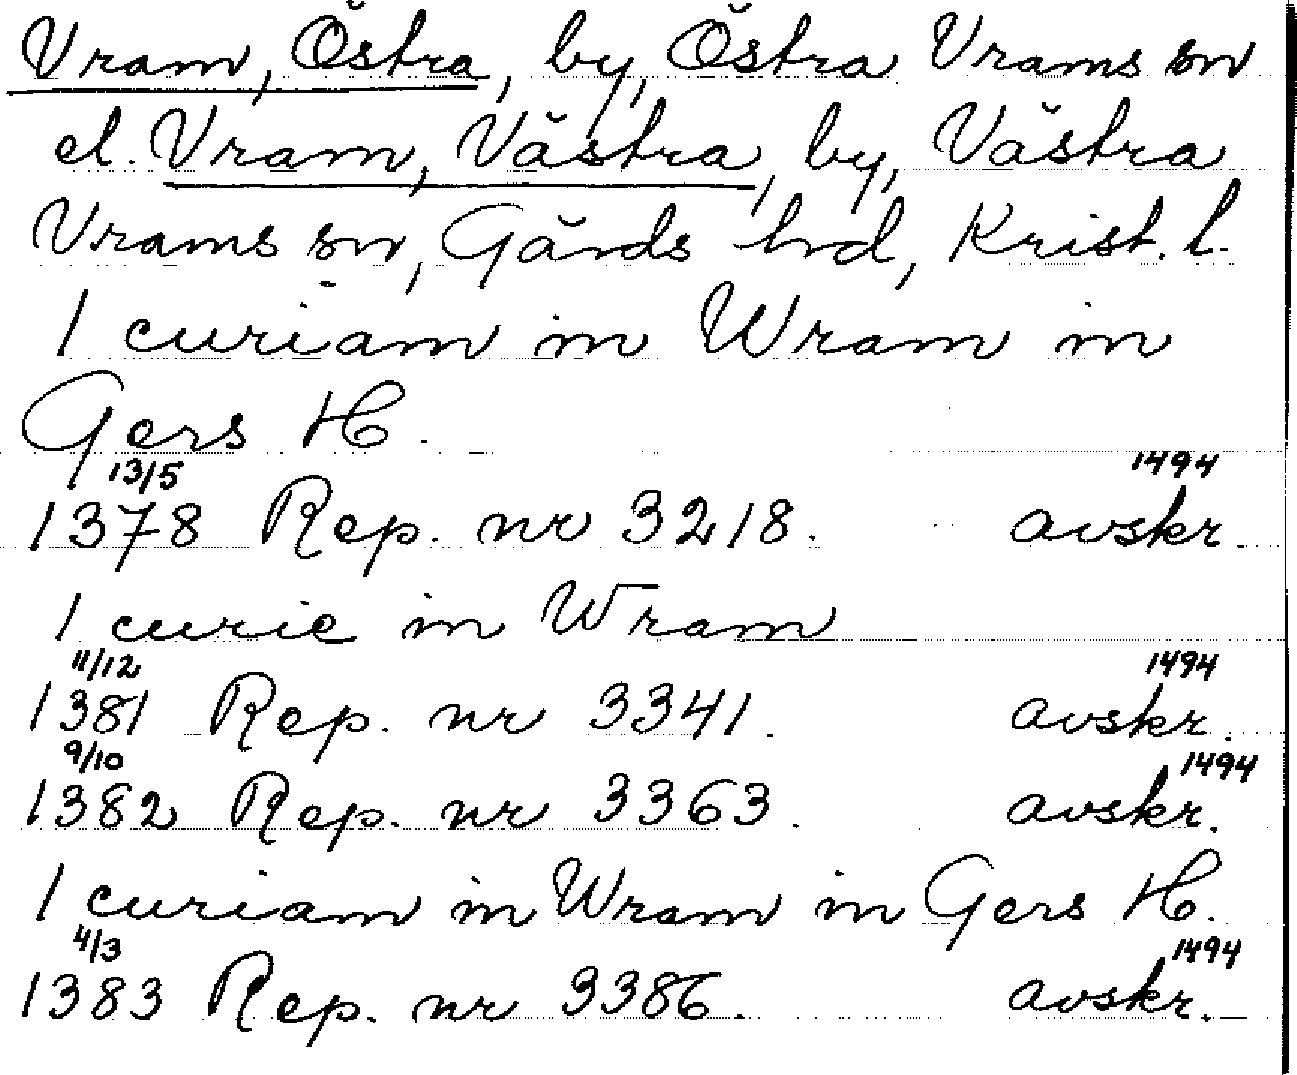 Vram, Östra, by, Östra Vrams sn
el. Vram, Västra, by, Västra
Vrams sn, Gärds hd, Krist. l.
1 curiam in Wram in
Gers H.
13/5 1494
1378 Rep. nr 3218. avskr.
1 curie in Wram
11/12 1494
1381 Rep. nr 3341. avskr.
9/10 1494
1382 Rep. nr 3363. avskr.
1 curiam in Wram in Gers H.
4/3 1494
1383 Rep. nr 3386. avskr.